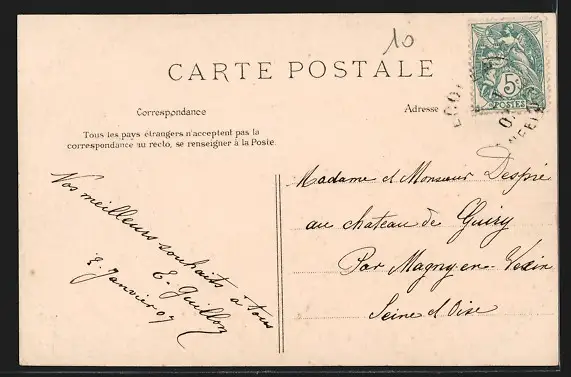 10
CARTE POSTALE
5c
POSTES
Correspondance
Adresse
Tous les pays étrangers n'acceptent pas la
correspondance au recto, se renseigner à la Poste.
Vos meilleurs souhaits à tous
E. Guillon
3 Janvier 07
Madame et Monsieur Despré
au chateau de Guiry
Par Magny-en-Vexin
Seine et Oise